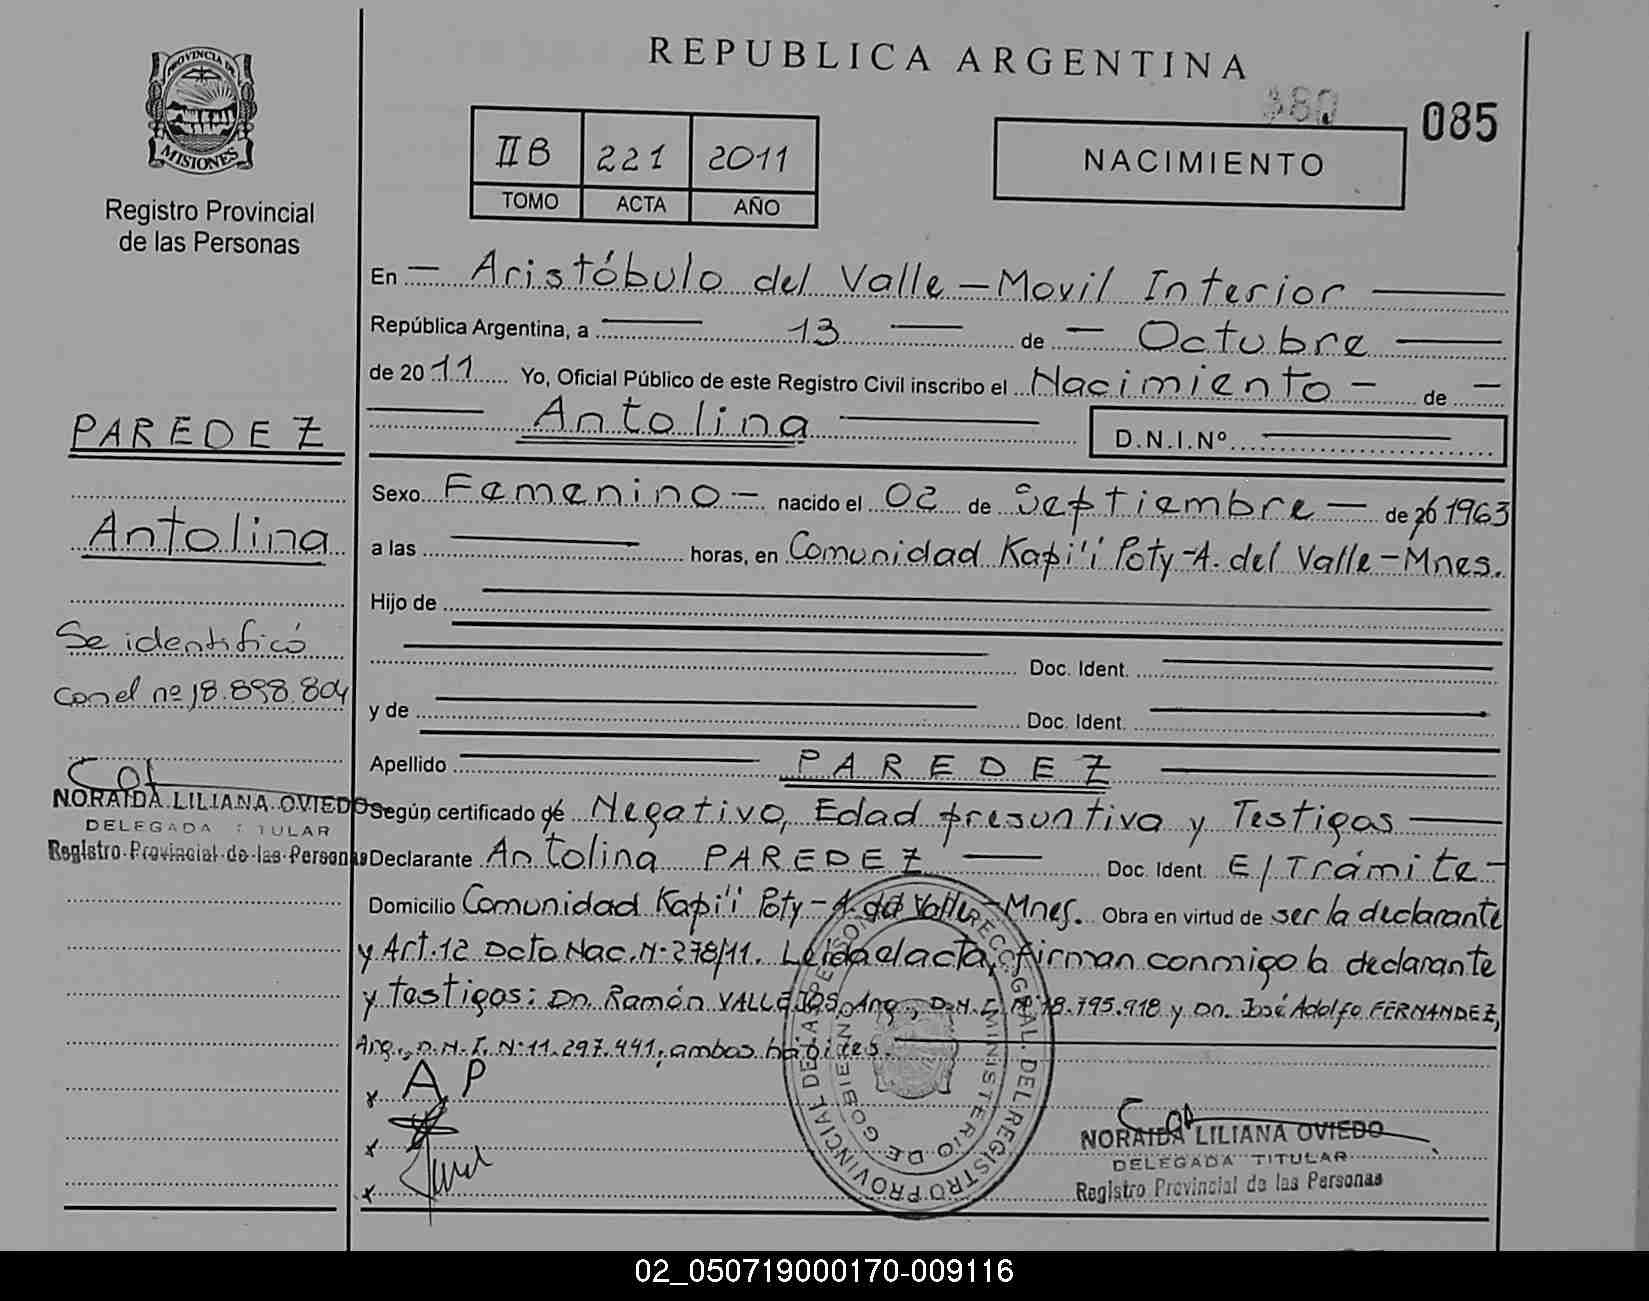 PROVINCIA DE
MISIONES
Registro Provincial
de las Personas
REPUBLICA ARGENTINA
085
IIB 221 2011
TOMO ACTA AÑO
NACIMIENTO
En — Aristóbulo del Valle — Movil Interior —
República Argentina, a — 13 — de — Octubre —
de 2011 Yo, Oficial Público de este Registro Civil inscribo el Nacimiento — de —
— Antolina — D.N.I.Nº —
Sexo Femenino — nacido el 02 de Septiembre — de 1963
a las — horas, en Comunidad Kapi'i Poty - A. del Valle - Mnes.
Hijo de —
— Doc. Ident. —
y de — Doc. Ident. —
Apellido — PAREDEZ —
Según certificado de Negativo, Edad presuntiva y Testigos —
Declarante Antolina PAREDEZ — Doc. Ident. E/Trámite -
Domicilio Comunidad Kapi'i Poty - A. del Valle - Mnes. Obra en virtud de ser la declarante
y Art. 12 Dcto Nac. Nº 278/11. Leída el acta, firman conmigo la declarante
y testigos: Dn. Ramón VALLEJOS, Arg., D.N.I. Nº 18.795.918 y Dn. José Adolfo FERNANDEZ,
Arg., D.N.I. Nº 11.297.441, ambos hábiles. —
x A P
x
x
PAREDEZ
Antolina
Se identificó
con el nº 18.898.804
NORAIDA LILIANA OVIEDO
DELEGADA TITULAR
Registro Provincial de las Personas
DIREC. GRAL. DEL REGISTRO PROVINCIAL DE LAS PERSONAS
MINISTERIO DE GOBIERNO
NORAIDA LILIANA OVIEDO
DELEGADA TITULAR
Registro Provincial de las Personas
02_050719000170-009116